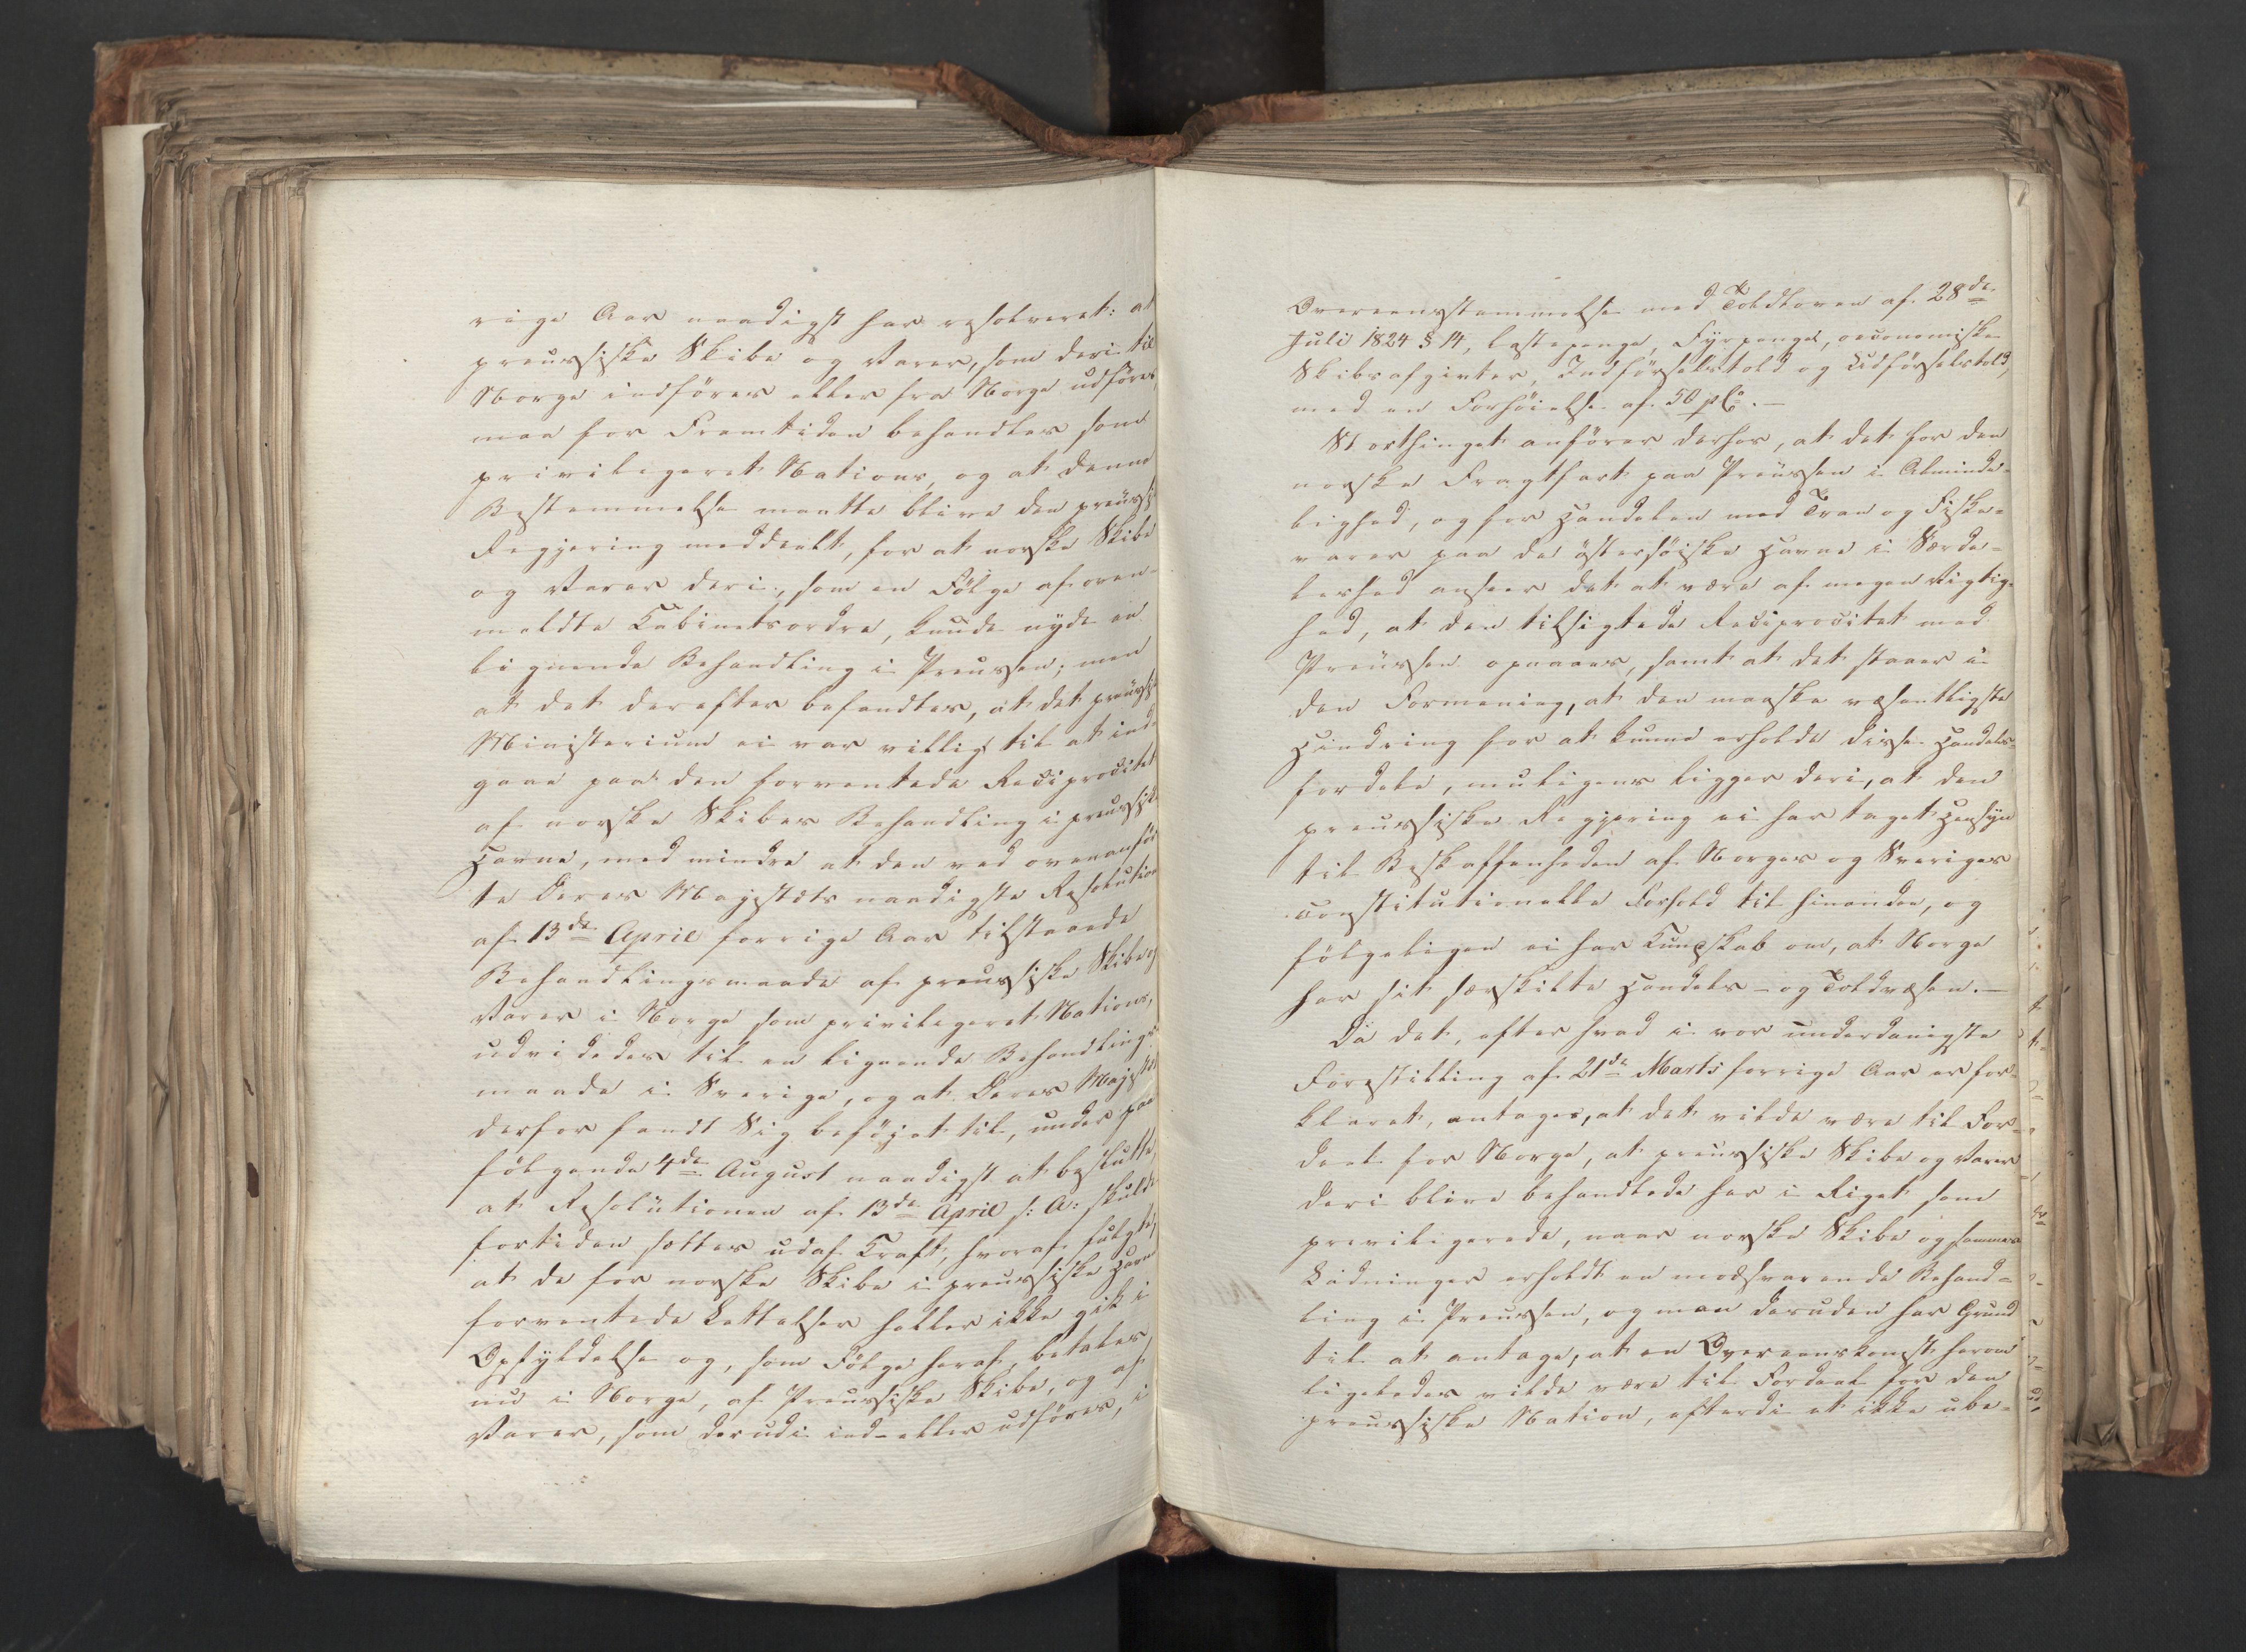 rige Aar naadigst har resolveret: at
preussiske Skibe og Varer, som deri til
Norge indföres eller fra Norge udföres,
maa for Fremtiden behandles som
privilegeret Nations, og at denne
Bestemmelse maatte blive den preussi
Regjering meddeelt, for at norske Skibe
og Varer deri, som en Fölge af oven-
meldte Cabinetsordre, kunde nyde en
lignende Behandling i Preussen; men
at det derefter befandtes, at det preussi
Ministerium ei var villig til at ind-
gaae paa den forventede Reciprocitet
af norske Skibes Behandling i preussisk
Havne, med mindre at den ved ovenanför
te Deres Majestæts naadigste Resolution
af 13de April forrige Aar tilstaaede
Behandlingsmaade af preussiske Skibe og
Varer i Norge som privilegeret Nations,
udvidedes til en lignende Behandlings-
maade i Sverige, og at Deres Majestæt
derfor fandt Sig beföjet til, under paa
fölgende 4de August naadigst at beslutte,
at Resolutionen af 13de April f: A: skulde
fortiden sættes udaf Kraft, hvoraf fulgte,
at de for norske Skibe i preussiske Havne
forventede Lettelser heller ikke gik i
Opfyldelse og, som Fölge heraf, betales,
nu i Norge, af Preussiske Skibe, og af
Varer, som derudi ind- eller udföres, i
Overeensstemmelse med Toldloven af 28de
Juli 1824 § 14, Lastepenge, Fyrpenge, oeconomiske
Skibsafgivter, Indförselstold og Udförselstold,
med en Forhöielse af 50 pCt.—
Storthinget anförer derhos, at det for den
norske Fragtfart paa Preussen i Alminde-
lighed, og for Handelen med Tran og Fiske-
varer paa de östersöiske Havne i Særde-
leshed anseer det at være af megen Vigtig-
hed, at den tilsigtede Reciprocitet med
Preussen opnaaes, samt at det staaer i
den Formening, at den maaske væsentligste
Hindring for at kunne erholde disse Handels-
fordele, muligens ligger deri, at den
preussiske Regjering ei har taget Hensyn
til Beskaffenheden af Norges og Sveriges
constitutionelle Forhold til hinanden, og
fölgeligen ei har Kundskab om, at Norge
har sit særskilte Handels- og Toldvæsen.—
Da det, efter hvad i vor underdanigste
Forestilling af 21de Marts forrige Aar er for-
klaret, antages, at det vilde være til For-
deel for Norge, at preussiske Skibe og Varer
deri blive behandlede her i Riget som
previligerede, naar norske Skibe og sammes
Ladninger erholdt en modsvarende Behand-
ling i Preussen, og man desuden har Grund
til at antage, at en Overeenskomst herom
ligeledes vilde være til Fordeel for den
preussiske Nation, efterdi et ikke ube-